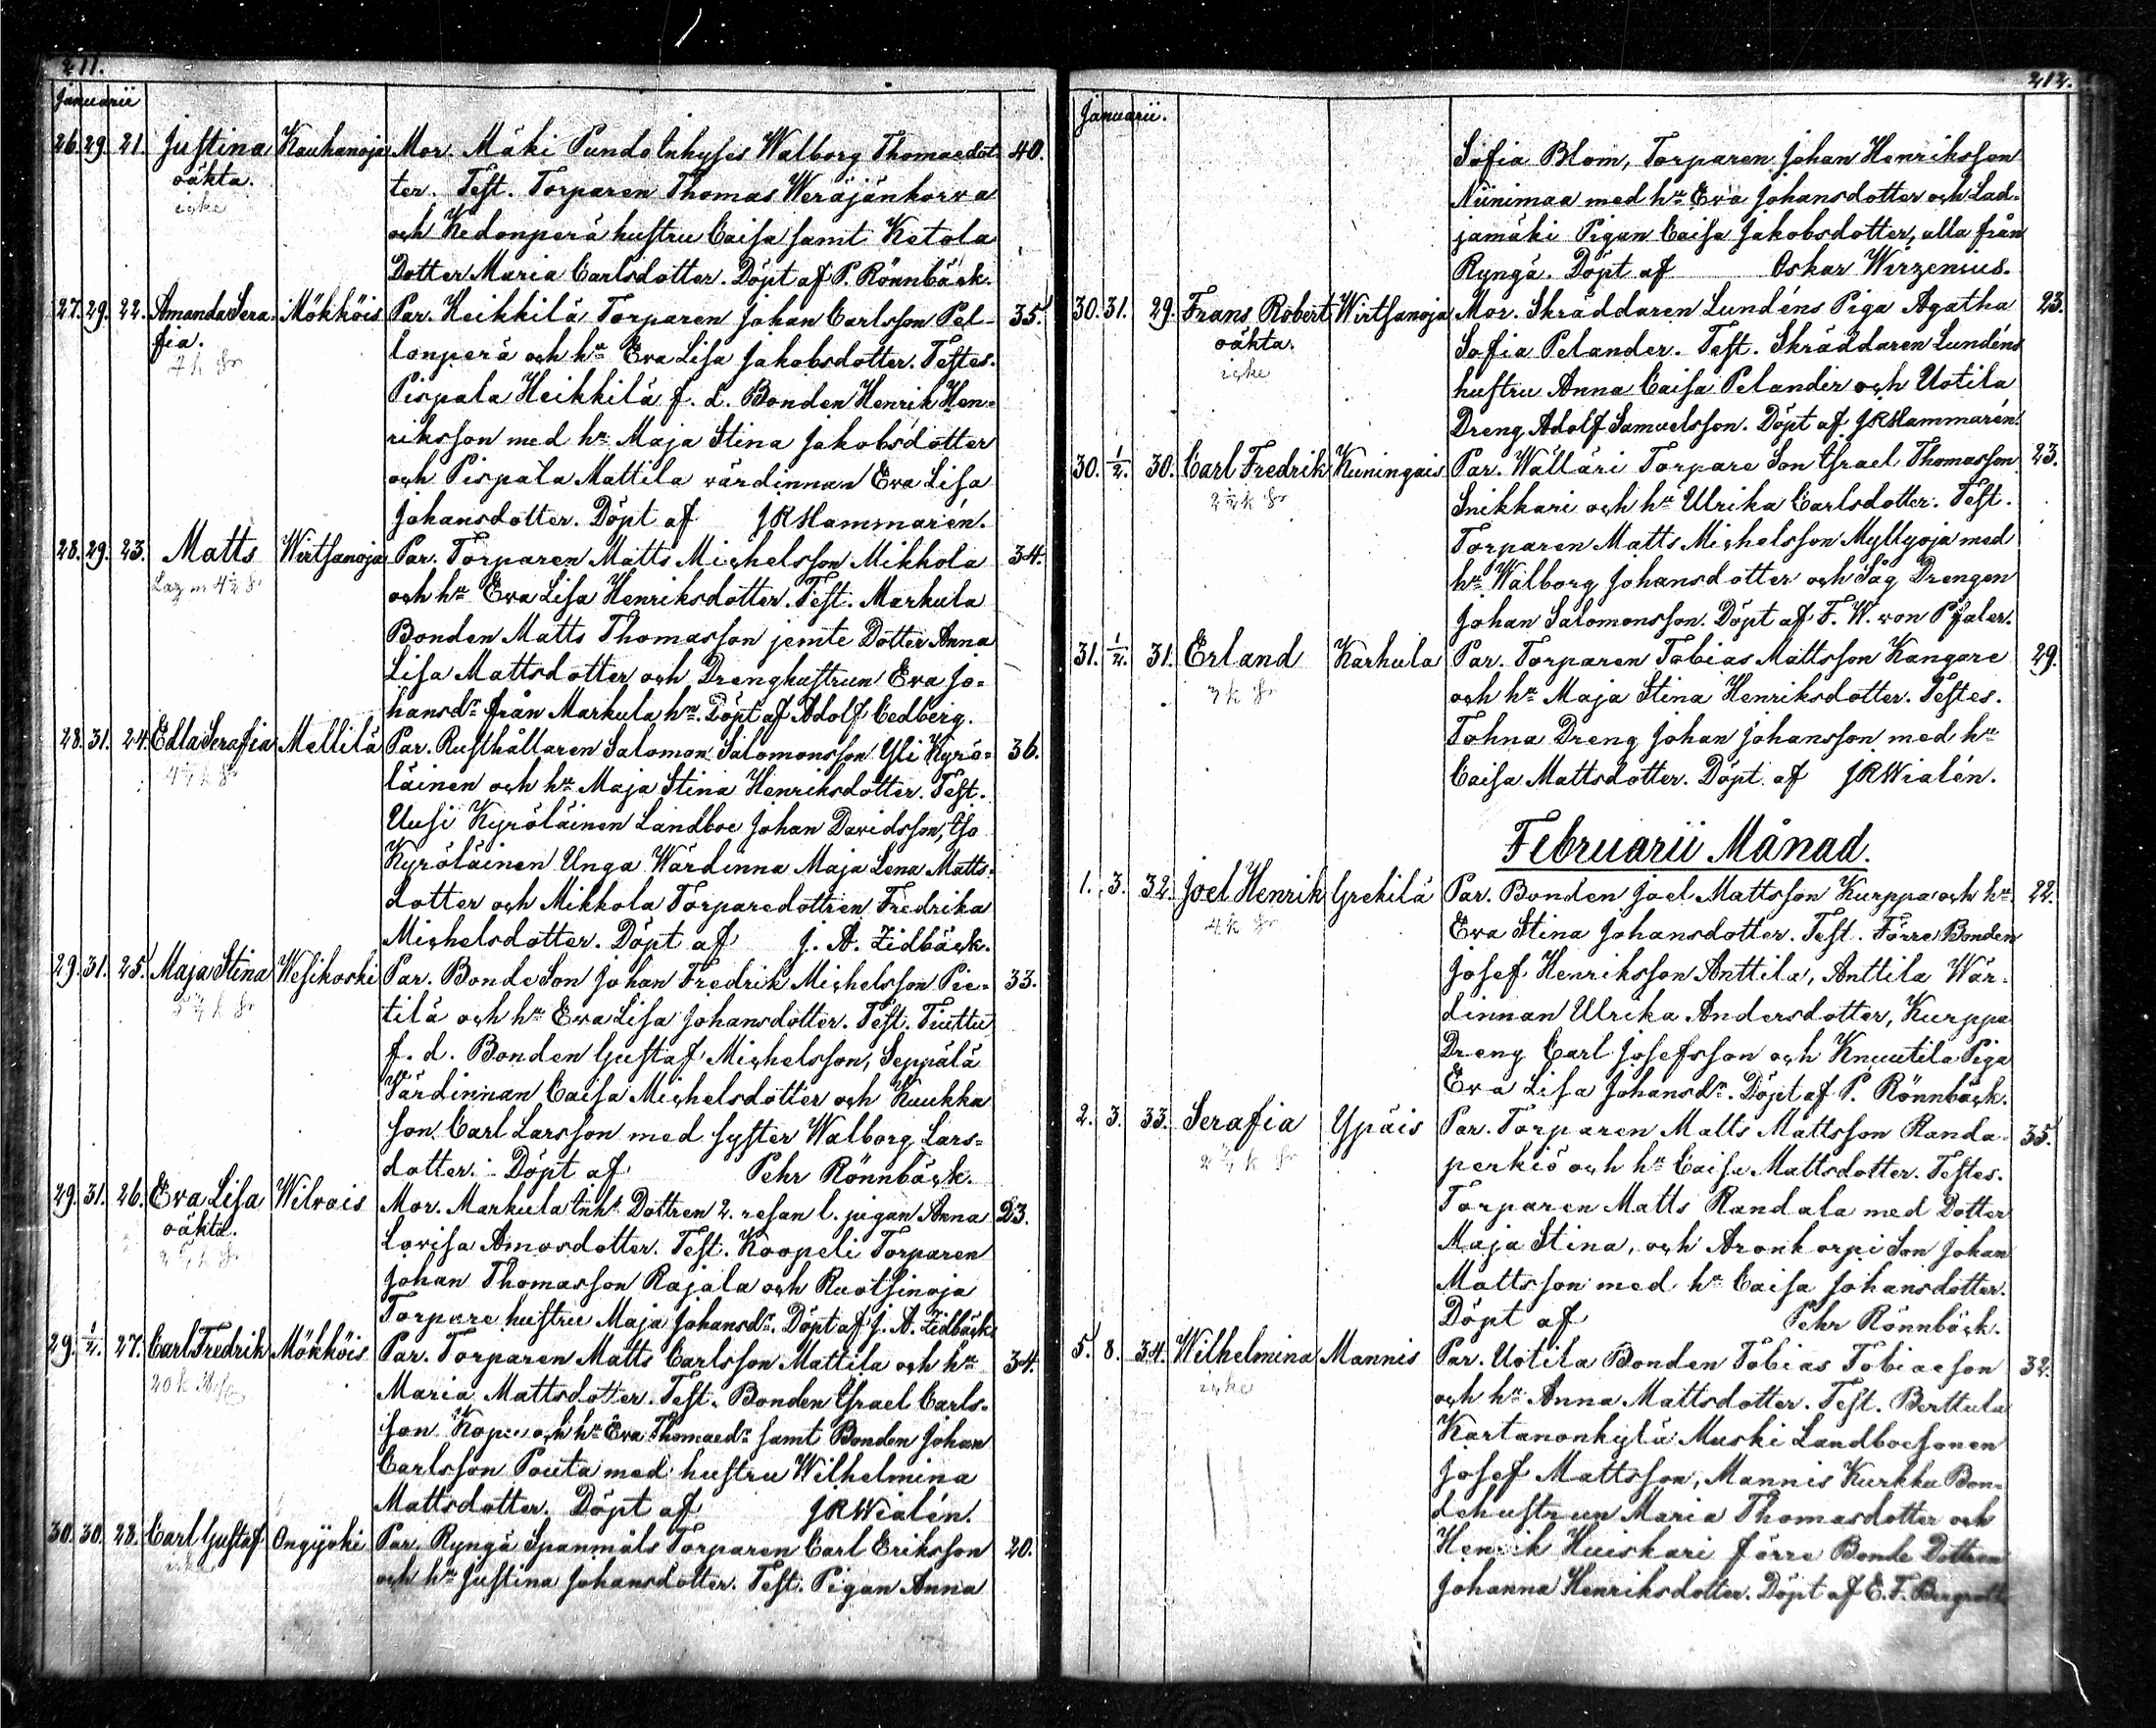 211.
Januarii
26. 29. 21. Justina Kauhanoja Mor. Mäki Pundolnhyses Walborg Thomaedot 40.
oäkta. ter. Test. Torparen Thomas Weräjänkorva
icke och Kedonperä hustru Caisa samt Ketola
Dotter Maria Carlsdotter. Döpt af P. Rönnbäck.
27. 29. 22. Amanda Sera- Mökköis Par. Heikkilä Torparen Johan Carlsson Pel- 35.
fia. tonperä och hu Eva Lisa Jakobsdotter. Testes.
Pispala Heikkilä f. d. Bonden Henrik Hen-
riksson med hu Maja Stina Jakobsdotter
och Pispala Mattila värdinnan Eva Lisa
Johansdotter. Döpt af JRHammarén.
28. 29. 23. Matts Wirtsanoja Par. Torparen Matts Michelsson Mikkola 34.
och hu Eva Lisa Henriksdotter. Test. Markula
Bonden Matts Thomasson jemte Dotter Anna
Lisa Mattsdotter och Drenghustrun Eva Jo-
hansdr från Markula hn. Döpt af Adolf Cedberg.
28. 31. 24. Edla Serafia Mellilä Par. Rusthållaren Salomon Salomonsson Yli Kyrö- 36.
läinen och hu Maja Stina Henriksdotter. Test.
Uusi Kyröläinen Landboe Johan Davidsson, Iso
Kyröläinen Unga Wärdinna Maja Lena Matts-
dotter och Mikkola Torparedottren Fredrika
Michelsdotter. Döpt af J. A. Zidbäck.
29. 31. 25. Maja Stina Wesikoski Par. BondeSon Johan Fredrik Michelsson Pie- 33.
tilä och hu Eva Lisa Johansdotter. Test. Tuttu
f. d. Bonden Gustaf Michelsson, Seppälä
Värdinnan Caisa Michelsdotter och Kuukka
son Carl Larsson med syster Walborg Lars-
dotter. Döpt af Pehr Rönnbäck.
29. 31. 26. Eva Lisa Wilvois Mor. Markula Inhs Dottren 2. resan l. pigan Anna 23.
oäkta. Lovisa Amosdotter. Test. Koopeli Torparen
Johan Thomasson Rajala och Ruotsinoja
Torpare hustru Maja Johansdr. Döpt af J. A. Zidbäck
29. 1/2. 27. Carl Fredrik Mökköis Par. Torparen Matts Carlsson Mattila och hu 34.
Maria Mattsdotter. Test. Bonden Israel Carls-
son och hu Eva Thomaedr samt Bonden Johan
Carlsson Pouta med hustru Wilhelmina
Mattsdotter. Döpt af JRWialén.
30. 30. 28. Carl Gustaf Ongijoki Par. Ryngä Spanmåls Torparen Carl Eriksson 20.
icke och hu Justina Johansdotter. Test. Pigan Anna
212.
Januarii.
Sofia Blom, Torparen Johan Henriksson
Niinimaa med hu Eva Johansdotter och Lad-
jamäki Pigan Caisa Jakobsdotter, alla från
Ryngä. Döpt af Oskar Wirzenius.
30. 31. 29. Frans Robert Wirtsanoja Mor. Skräddaren Lundéns Piga Agatha 23.
oäkta. Sofia Pelander. Test. Skräddaren Lundéns
icke hustru Anna Caisa Pelander och Uotila
Dreng Adolf Samuelsson. Döpt af JRHammarén.
30. 1/2. 30. Carl Fredrik Kuningais Par. Wälläri Torpare Son Israel Thomasson 23.
Snikkari och hu Ulrika Carlsdotter. Test.
Torparen Matts Michelsson Myllyoja med
hu Walborg Johansdotter och Såg Drengen
Johan Salomonsson. Döpt af F. W. von Pfaler.
31. 1/2. 31. Erland Karhula Par. Torparen Tobias Mattsson Kangare 29.
och hu Maja Stina Henriksdotter. Testes.
Tohna Dreng Johan Johansson med hu
Caisa Mattsdotter. Döpt af JRWialén.
Februarii Månad.
1. 3. 32. Joel Henrik Grekilä Par. Bonden Joel Mattsson Kurppa och hu 22.
Eva Stina Johansdotter. Test. Förre Bonden
Josef Henriksson Anttila, Anttila Wär-
dinnan Ulrika Andersdotter, Kurppa
Dreng Carl Josefsson och Knuutila Piga
Eva Lisa Johansdr. Döpt af P. Rönnbäck.
2. 3. 33. Serafia Ypäis Par. Torparen Matts Mattsson Randa- 35.
perkiö och hu Caisa Mattsdotter. Testes.
Torparen Matts Randala med Dotter
Maja Stina, och Aronkorpi Son Johan
Mattsson med hu Caisa Johansdotter.
Döpt af Pehr Rönnbäck.
5. 8. 34. Wilhelmina Mannis Par. Uotila Bonden Tobias Tobiaeson 32.
icke och hu Anna Mattsdotter. Test. Berttula
Kartanonkylä Muski Landboesonen
Josef Mattsson, Mannis Kurkku Bon-
dehustrun Maria Thomasdotter och
Henrik Huiskari förre Bonde Dottren
Johanna Henriksdotter. Döpt af E. F. Bergroth